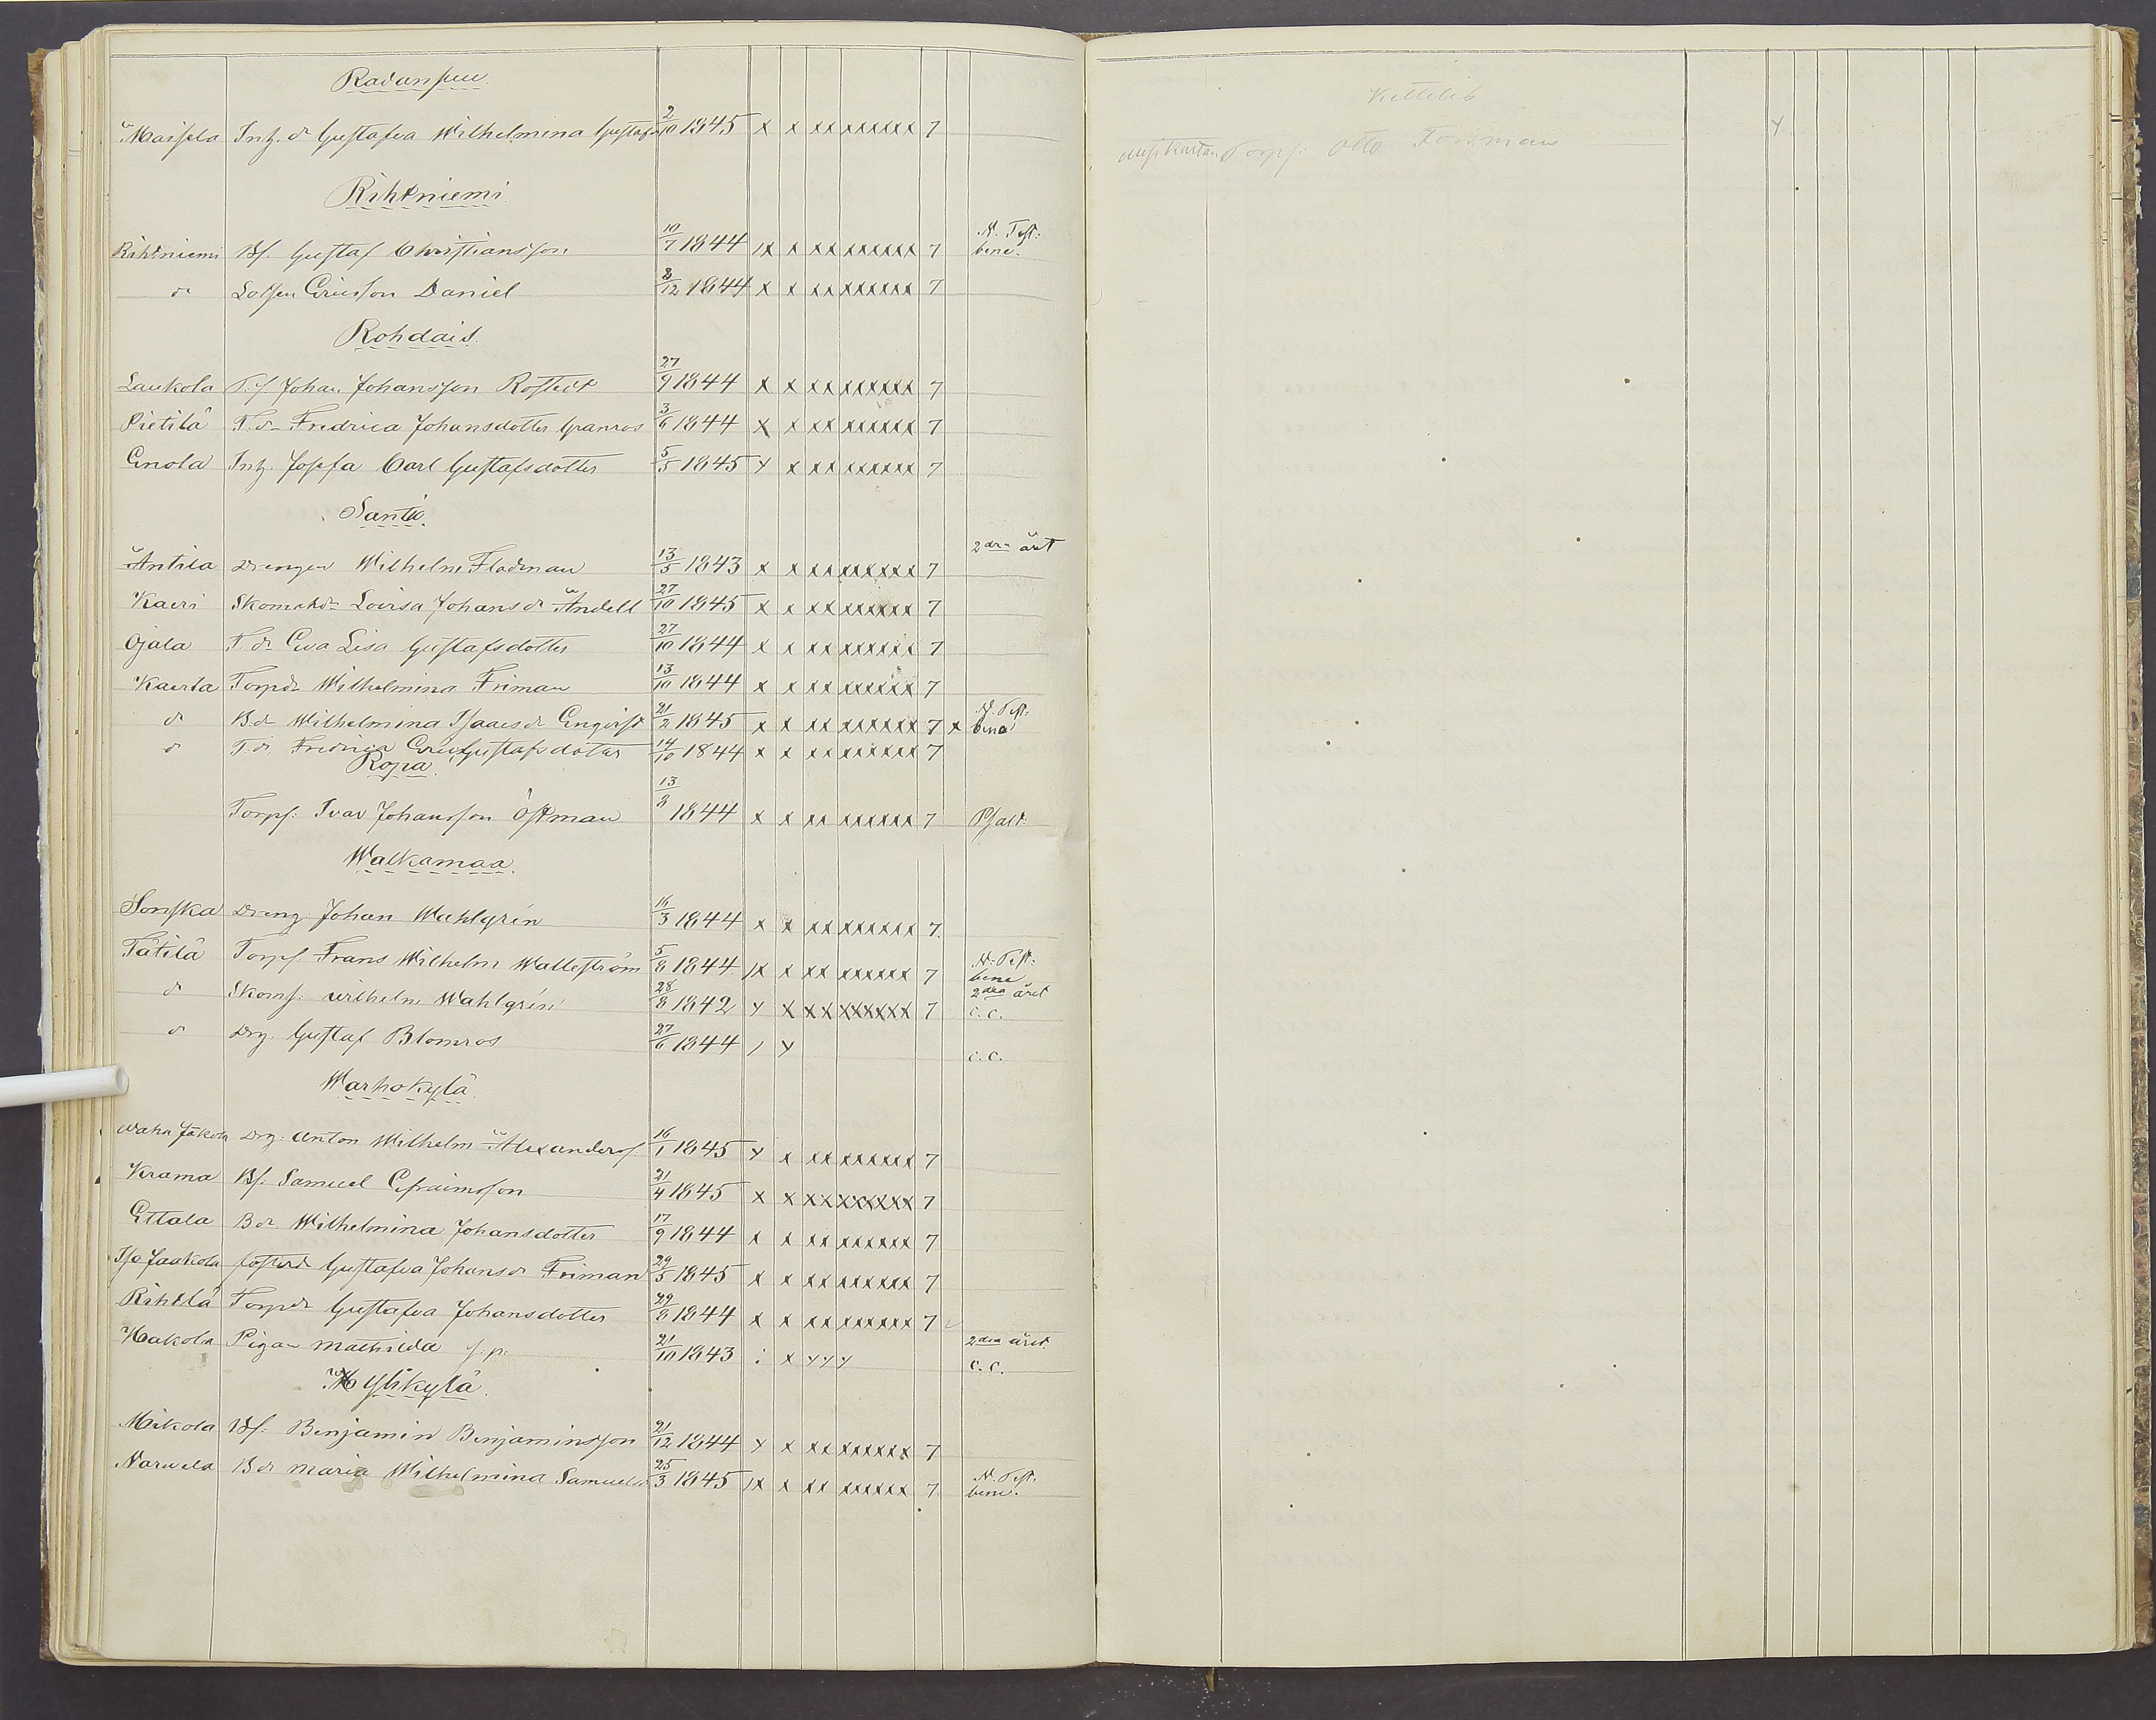 Radansuu.
Maisela Inh. dr Gustafva Wilhelmina Gustafsd 2/10 1845 x x xx xxxxxx 7
Rihtniemi.
N. Test:
Rihtniemi Bs. Gustaf Christiansson 10/7 1844 ix x xx xxxxxx 7 bene.
dr Lotsen Ericsson Daniel 8/12 1844 x x xx xxxxxx 7
Rohdais.
Laukola T.s. Johan Johansson Rostedt 27/9 1844 x x xx xxxxxx 7
Pietilä T. dr Fredrica Johansdotter Granros 3/6 1844 x x xx xxxxxx 7
Enola Inh. Josefa Carl Gustafsdotter 5/5 1845 y x xx xxxxxx 7
Santio.
2dra året
Antila Drengen Wilhelm Flodman 13/5 1843 x x xx xxxxxx 7
Kaeri Skomakdr Lovisa Johansdr Andell 27/10 1845 x x xx xxxxxx 7
Ojala T. dr Eva Lisa Gustafsdotter 27/10 1844 x x xx xxxxxx 7
Kaerla Torpdr Wilhelmina Friman 13/10 1844 x x xx xxxxxx 7
N. Test:
dr B. dr Wilhelmina Isaacsdr Engqvist 21/2 1845 x x xx xxxxxx 7 x bene
dr T. dr Fredrica Gustafsdotter 14/10 1844 x x xx xxxxxx 7
Ropa.
Torps: Ivar Johansson Östman 13/8 1844 x x xx xxxxxx 7 Psalt.
Walkamaa.
Sonska Dreng Johan Wahlgrén 16/3 1844 x x xx xxxxxx 7.
N. Test:
Tätilä Torps. Frans Wilhelm Walleström 5/8 1844 ix x xx xxxxxx 7 bene
2dra året
dr Skoms: Wilhelm Wahlgrén 28/8 1842 y x xx xxxxxx 7 c.c.
dr Drg. Gustaf Blomros 27/6 1844 / y c.c.
Warhokylä.
Waha Jakola Drg: Anton Wilhelm Alexanders. 16/1 1845 y x xx xxxxxx 7
Krama Bs: Samuel Efraimsson 21/4 1845 x x xx xxxxxx 7
Ettala B dr Wilhelmina Johansdotter 17/9 1844 x x xx xxxxxx 7
Iso Jaakola fosterd Gustafva Johansdr Friman 29/5 1845 x x xx xxxxxx 7
Rihtlä Torpdr Gustafva Johansdotter 29/8 1844 x x xx xxxxxx 7
2dra året.
Hakola Pigan Mathilda s.p: 21/10 1843 : x yyy c.c.
Hylikylä.
Mikola Bs: Benjamin Benjaminsson 21/12 1844 y x xx xxxxxx 7
N. Test.
Narvela B dr Maria Wilhelmina Samuelsd 25/3 1845 ix x xx xxxxxx 7 bene.
Kettelib y
Torps: Otto Forsman